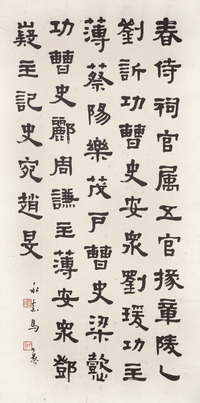 春侍祠官属五官掾章陵
劉訢功曹史安眾劉瑗功主
薄蔡陽樂茂戶曹史梁懿
功曹史酈周謙主薄安眾鄧
嶷主記史宛趙旻
馬